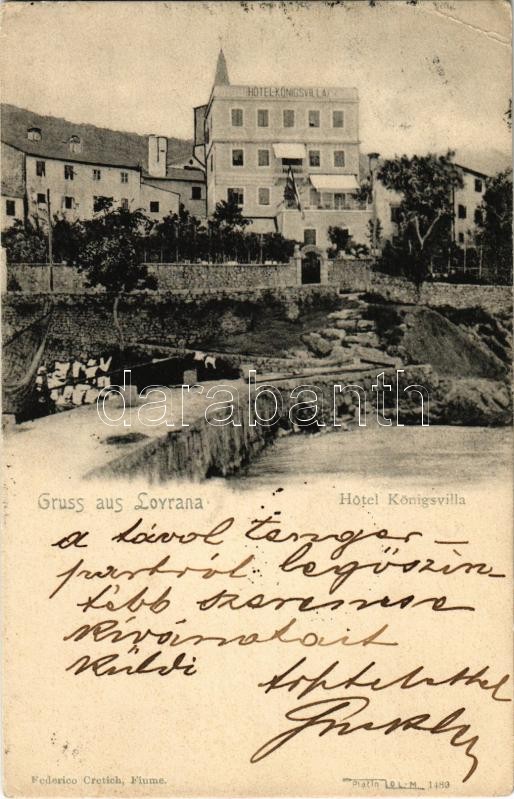 HÔTEL-KÖNIGSVILLA
darabanth
Gruss aus Lovrana
Hôtel Königsvilla
a távol tenger-
partról legőszin-
tébb szerencse
kívánatait
küldi
Federico Cretich, Fiume.
1489